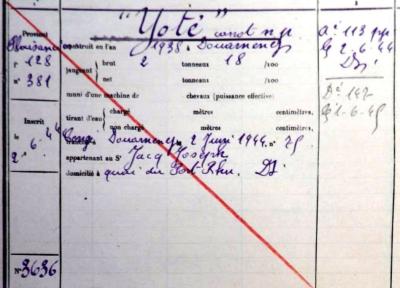 "Yoté" const ng
Provient
Plaisance
f° 128
n° 381
construit en l'an 1938 à Douarnenez
jaugeant { brut 2 tonneaux 18 /100
net tonneaux /100
muni d'une machine de chevaux (puissance effective)
tirant d'eau { chargé mètres centimètres,
non chargé mètres centimètres,
Inscrit
le 2 6. 44
Cong Douarnenez le 2 Juin 1944. n° 75
appartenant au Sr Jacq Joseph
domicilié à quai du Port-Rhu. Dz
N° 3636
A° 113
2-6-44
Dz
D° 142
1-6-45